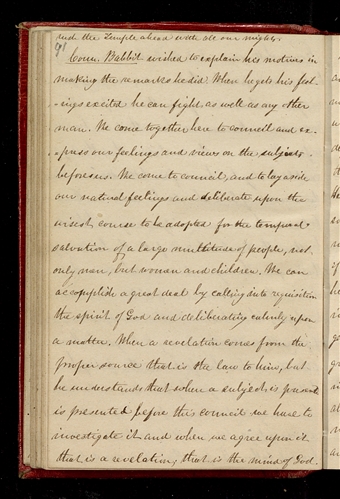 and the Temple ahead with all our mights.
91
Coun. Babbit wished to explain his motives in
making the remarks he did. When he gets his feel-
-ings excited he can fight as well as any other
man. We come together here to council and ex-
-press our feelings and views on the subjects
before us. We come to council, and to lay aside
our natural feelings and deliberate upon the
wisest course to be adopted for the temporal
salvation of a large multitude of people, not
only men, but women and children. We can
accomplish a great deal by calling into requisition
the spirit of God and deliberating calmly upon
a matter. When a revelation comes from the
proper source that is the law to him, but
he understands that when a subject is present
is presented before the council we have to
investigate it and when we agree upon it
that is a revelation, that is the mind of God.